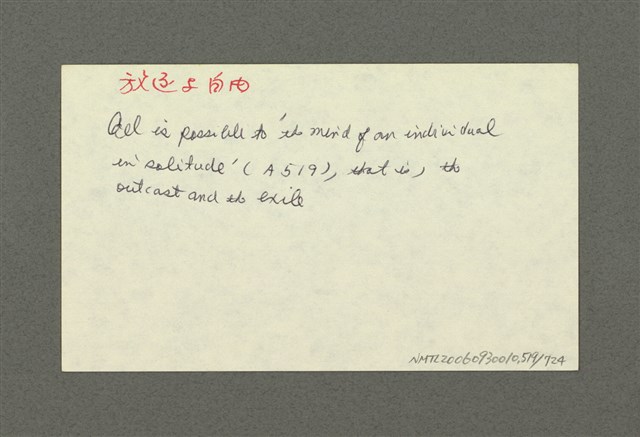 放逐与自由
All is possible to 'the mind of an individual
in solitude' (A 519), that is, the
outcast and the exile
NMTL20060930010,519/724